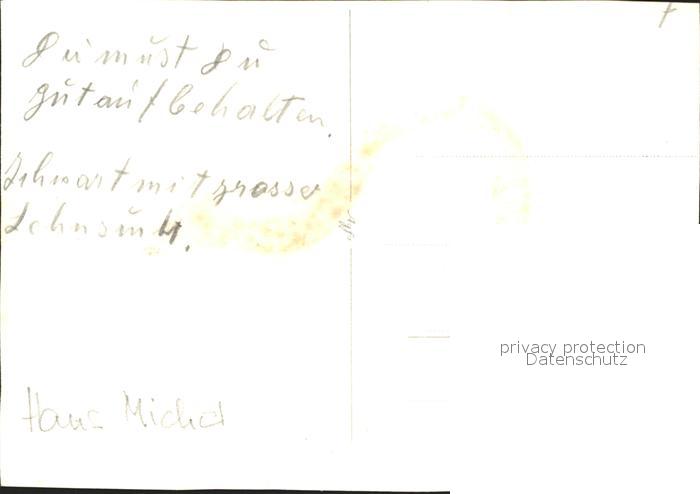 Du must Du
gut auf behalten.
Ich wart mit grosser
Sehnsucht.
Hans Michel
privacy protection
Datenschutz